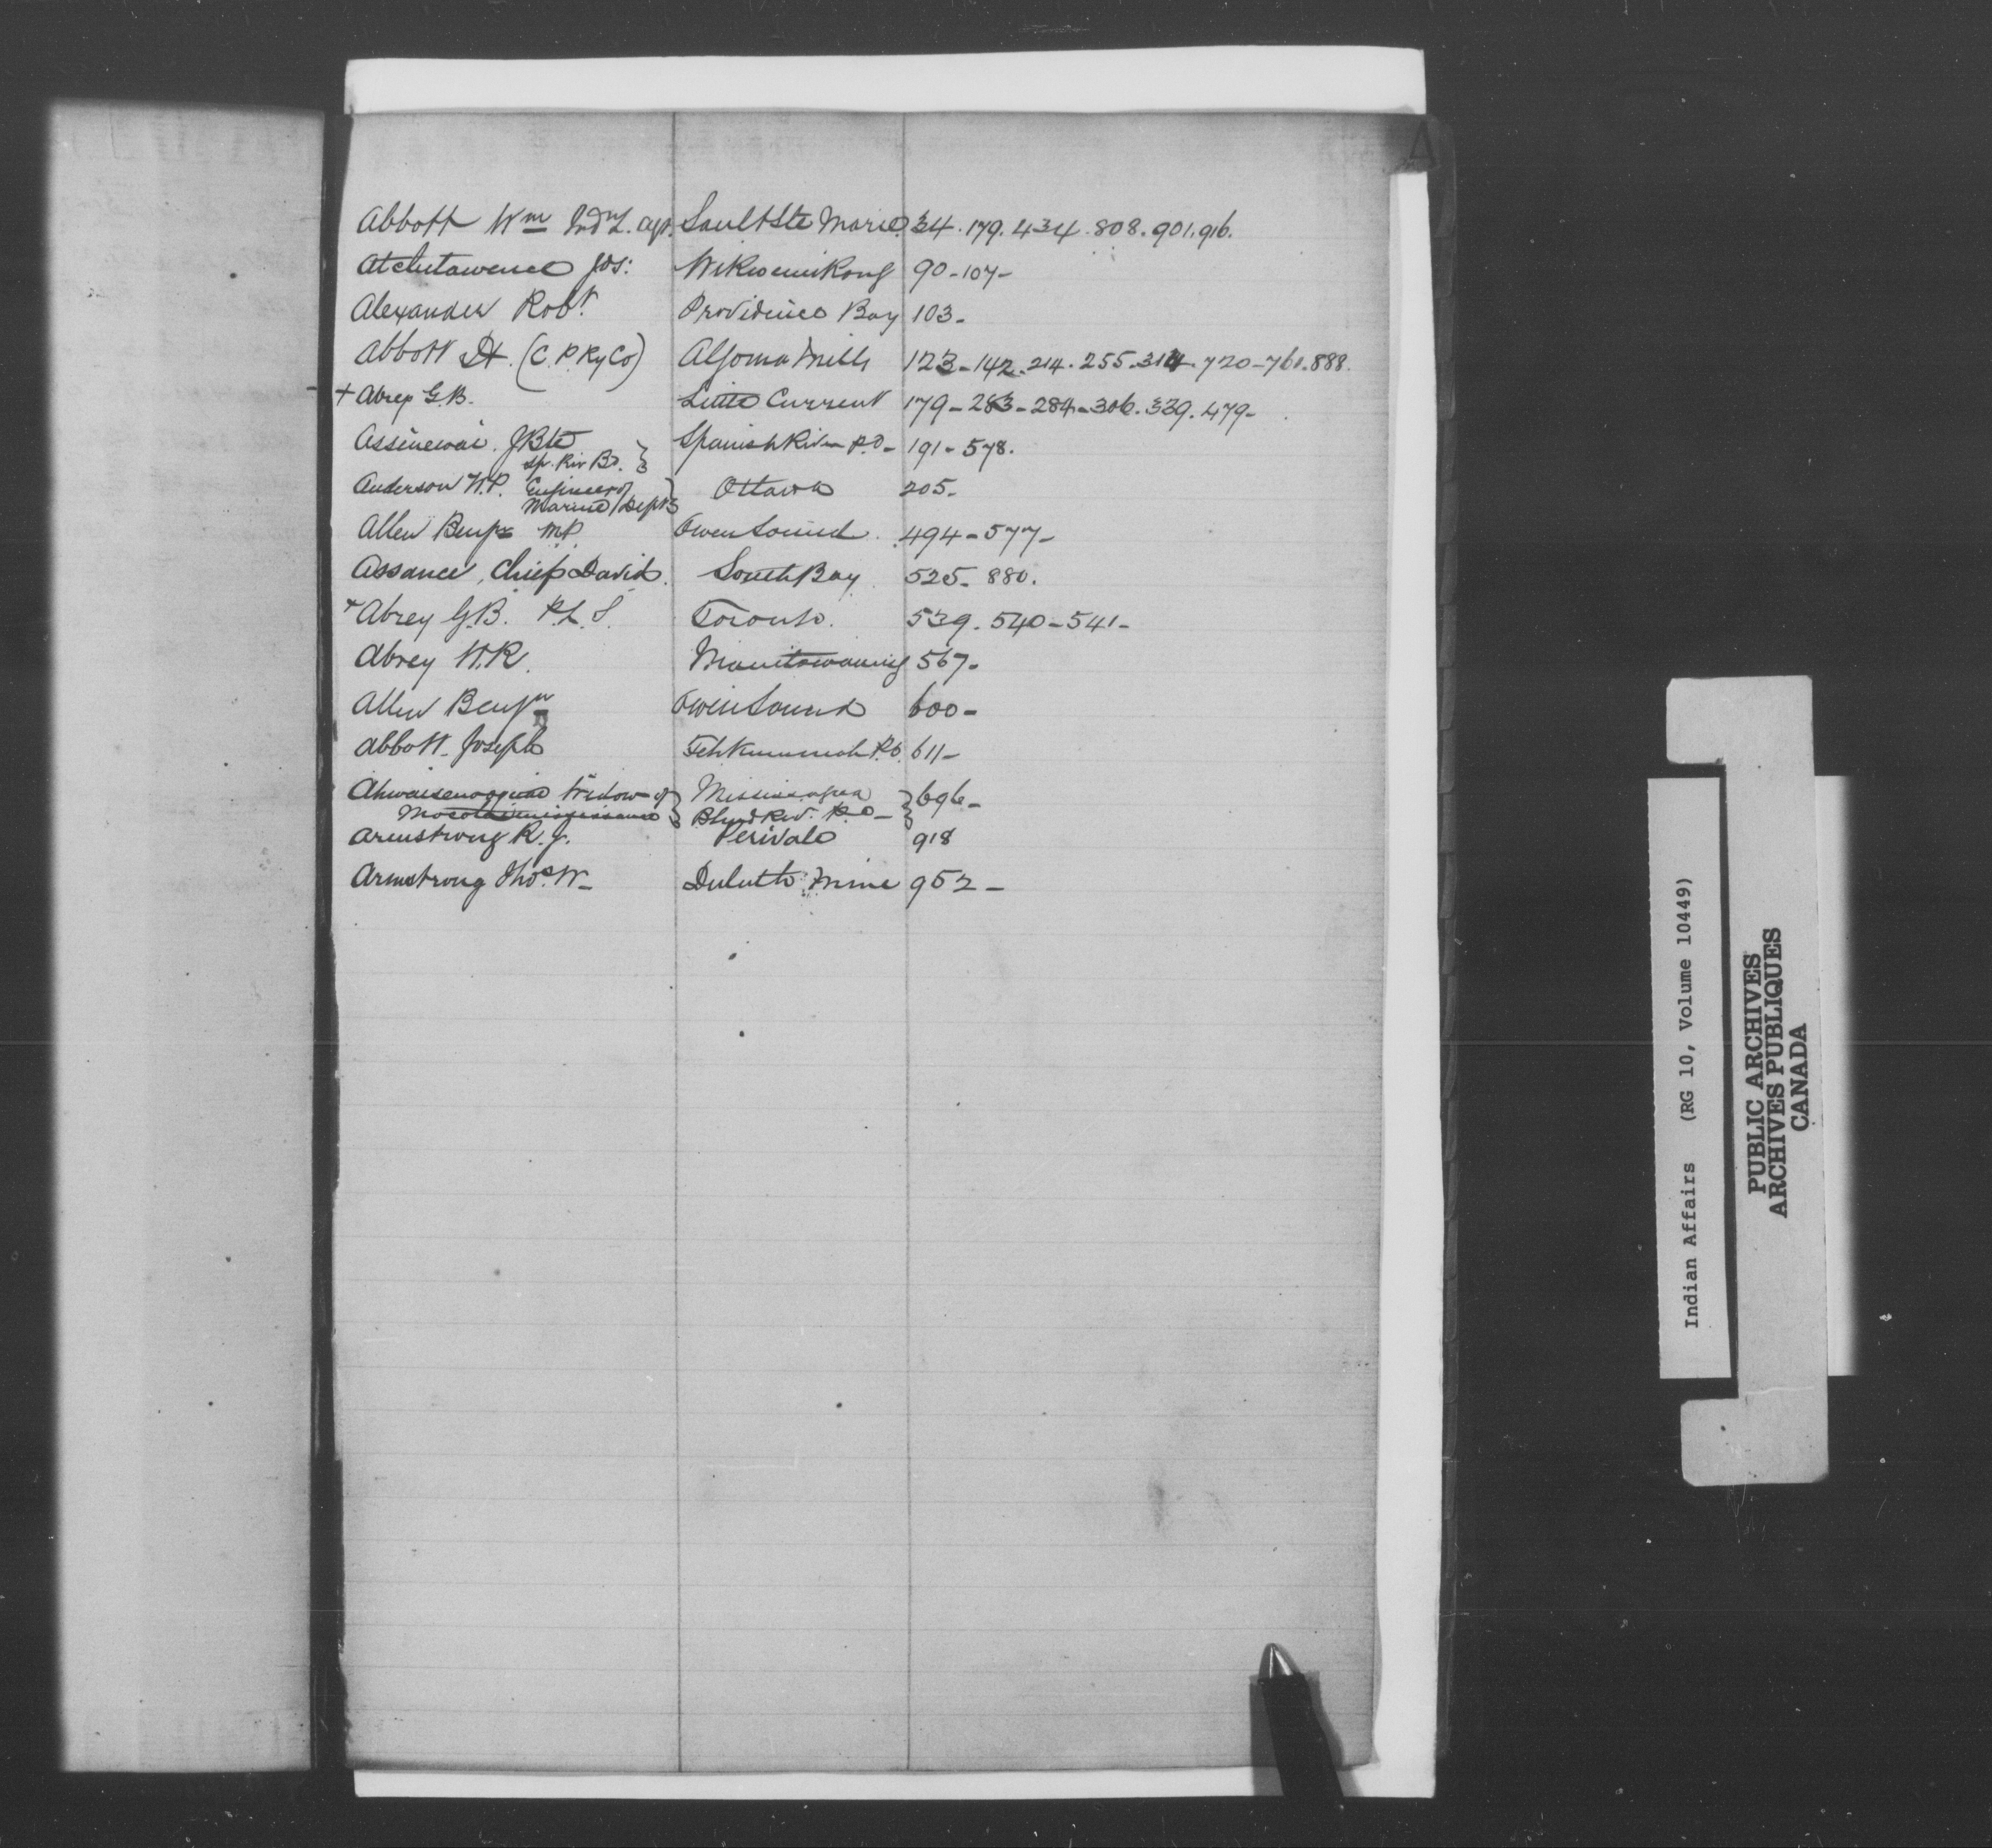 A
Abbott Wm Ind L. Agt. Sault Ste Marie. 34. 179. 434. 808. 901. 916.
Atchitawence Jos: Wikwemikong 90-107-
Alexander Robt. Providence Bay 103-
Abbott H. (C. P. Ry Co) Algoma Mills 123-142-214. 255. 314. 720-761. 888.
+ Abrey G.B. Little Current 179-283-284-306. 339. 479-
Assinewai. J Bte Spanish River P.O- 191-578.
Sp. Riv Bd. }
Anderson W.P. Engineer of } Ottawa 205-
Marine Dept }
Allen Benjn M.P. Owen Sound. 494-577-
Assance, Chief David. South Bay 525- 880.
+ Abrey G.B. P.L.S. Toronto. 539. 540-541-
Abrey W.R. Manitowaning 567-
Allen Benjn Owen Sound 600-
Abbott Joseph Tehkummah P.O. 611-
Widow of } Mississagua } 696-
} Blind Riv. P.O- }
Armstrong R.J. Perivale 918
Armstrong Thos. W- Duluth Minn 952-
Indian Affairs (RG 10, Volume 10449)
PUBLIC ARCHIVES
ARCHIVES PUBLIQUES
CANADA